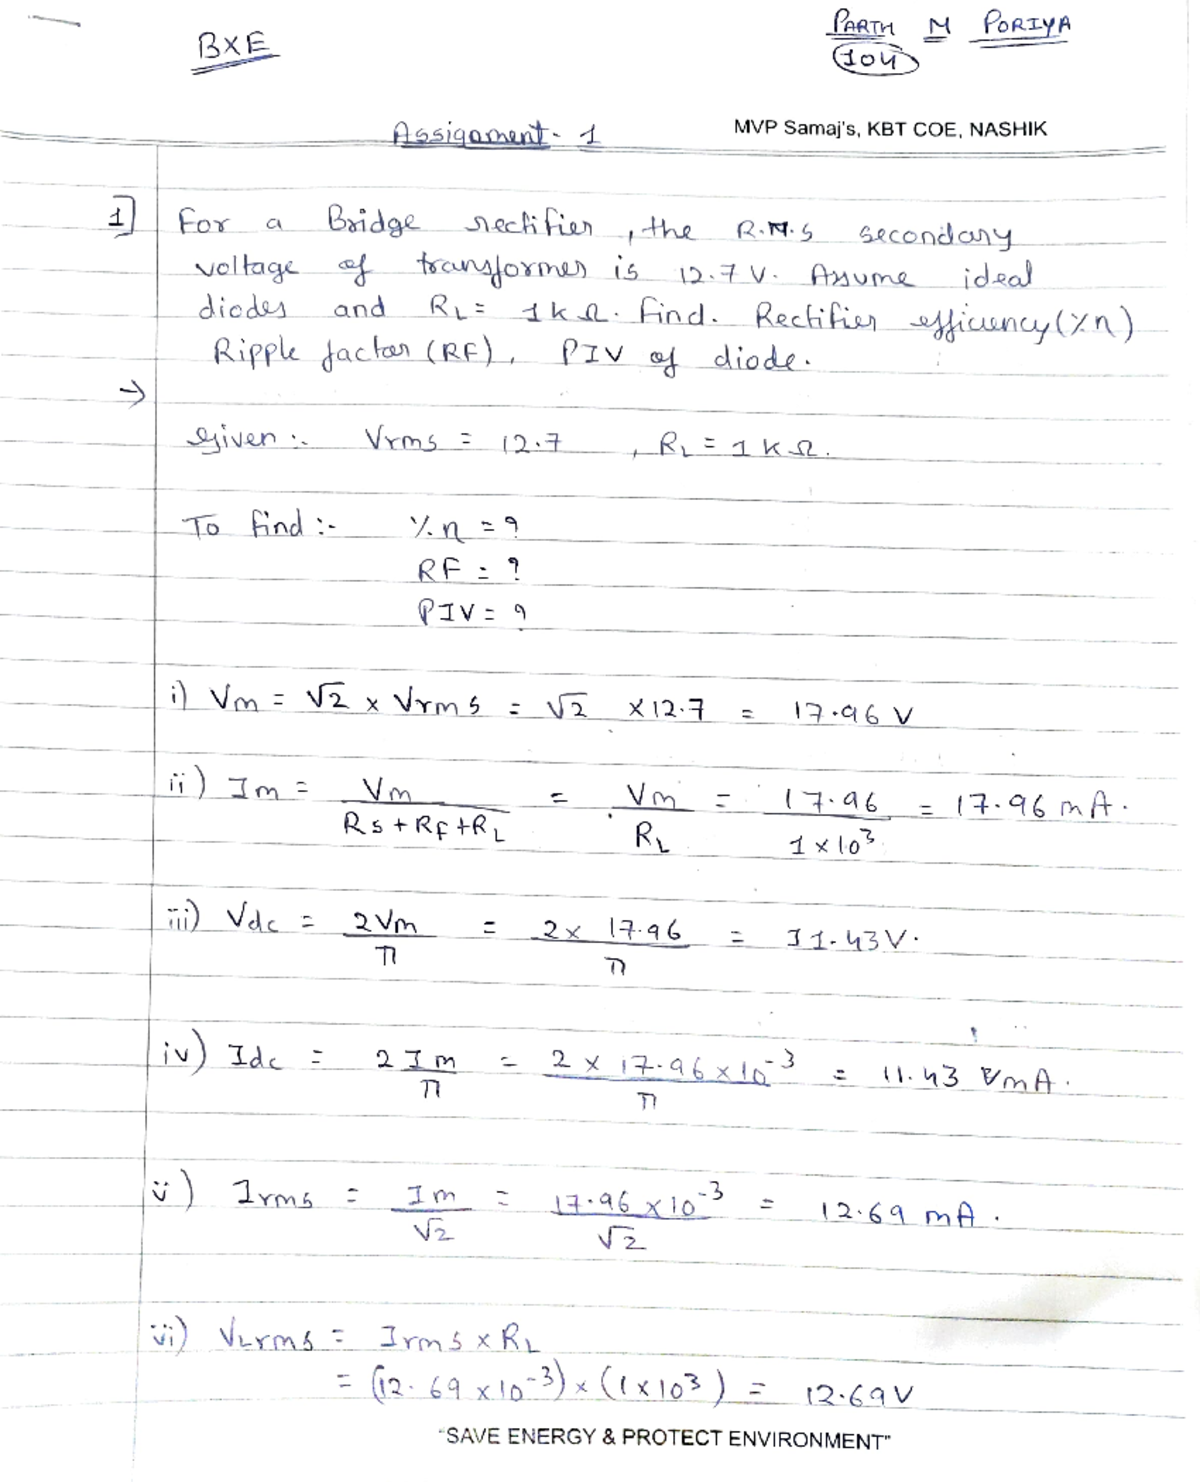 BXE
PARTH M PORIYA
104
Assignment - 1
MVP Samaj's, KBT COE, NASHIK
1] For a Bridge rectifier, the R.M.S secondary
voltage of transformer is 12.7 V. Assume ideal
diodes and RL = 1kΩ. Find. Rectifier efficiency (%η)
Ripple factor (RF), PIV of diode.
→
Given :- Vrms = 12.7 , RL = 1 kΩ.
To find :- %η = ?
RF = ?
PIV = ?
i) Vm = √2 × Vrms = √2 × 12.7 = 17.96 V
ii) Im = Vm / (Rs + RF + RL) = Vm / RL = 17.96 / (1 × 10³) = 17.96 mA.
iii) Vdc = 2Vm / π = 2 × 17.96 / π = 11.43 V.
iv) Idc = 2 Im / π = 2 × 17.96 × 10⁻³ / π = 11.43 mA.
v) Irms = Im / √2 = 17.96 × 10⁻³ / √2 = 12.69 mA.
vi) VLrms = Irms × RL
= (12.69 × 10⁻³) × (1 × 10³) = 12.69 V
"SAVE ENERGY & PROTECT ENVIRONMENT"